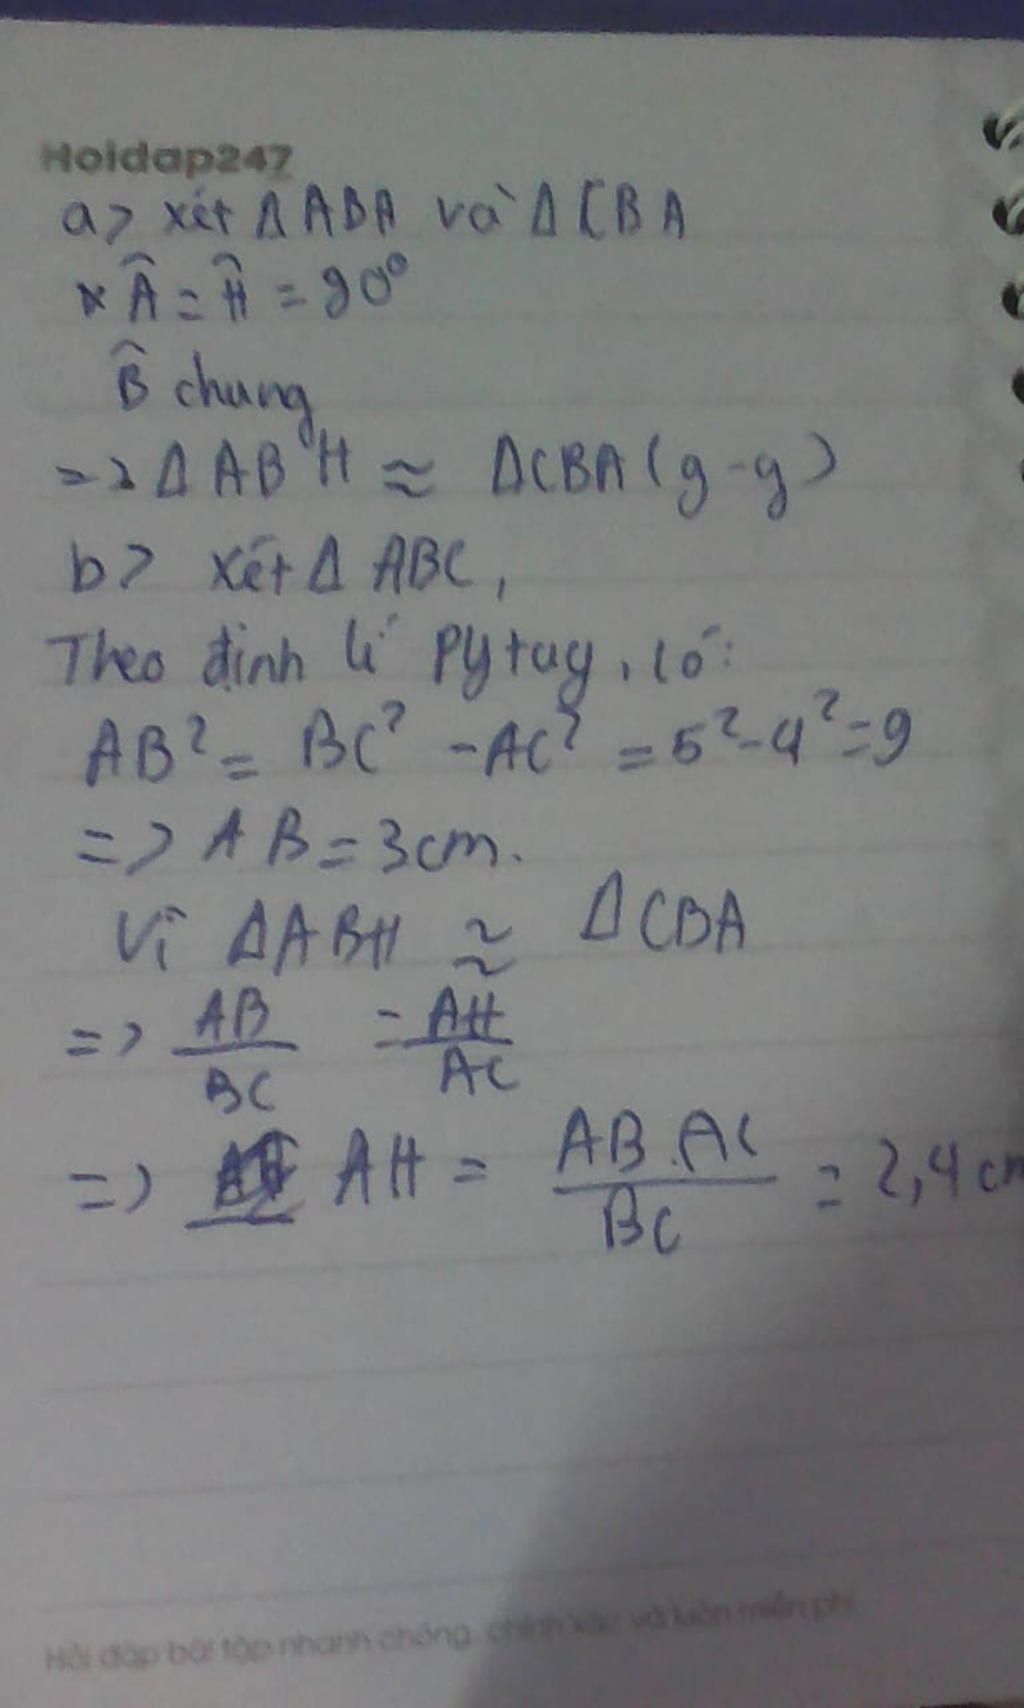 Hoidap247
a> xét Δ ABA và Δ CBA
* Â = Ĥ = 90°
B̂ chung
=> Δ ABH ≈ ΔCBA (g-g)
b> xét Δ ABC,
Theo định lí Pytay, có:
AB² = BC² - AC² = 5² - 4² = 9
=> AB = 3cm.
Vì ΔABH ≈ ΔCBA
=> AB/BC = AH/AC
=> AH = AB.AC/BC = 2,4 cm
Hỏi đáp bài tập nhanh chóng, chính xác và luôn miễn phí